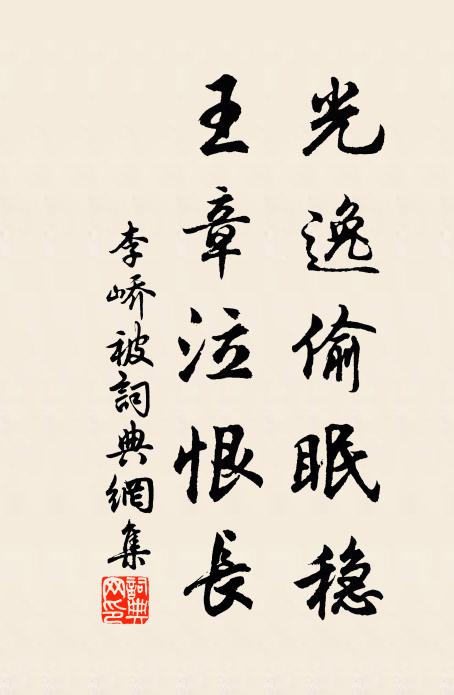 光逸偷眠穏
王章泣恨長
李嶠被詞典網集
詞典网印